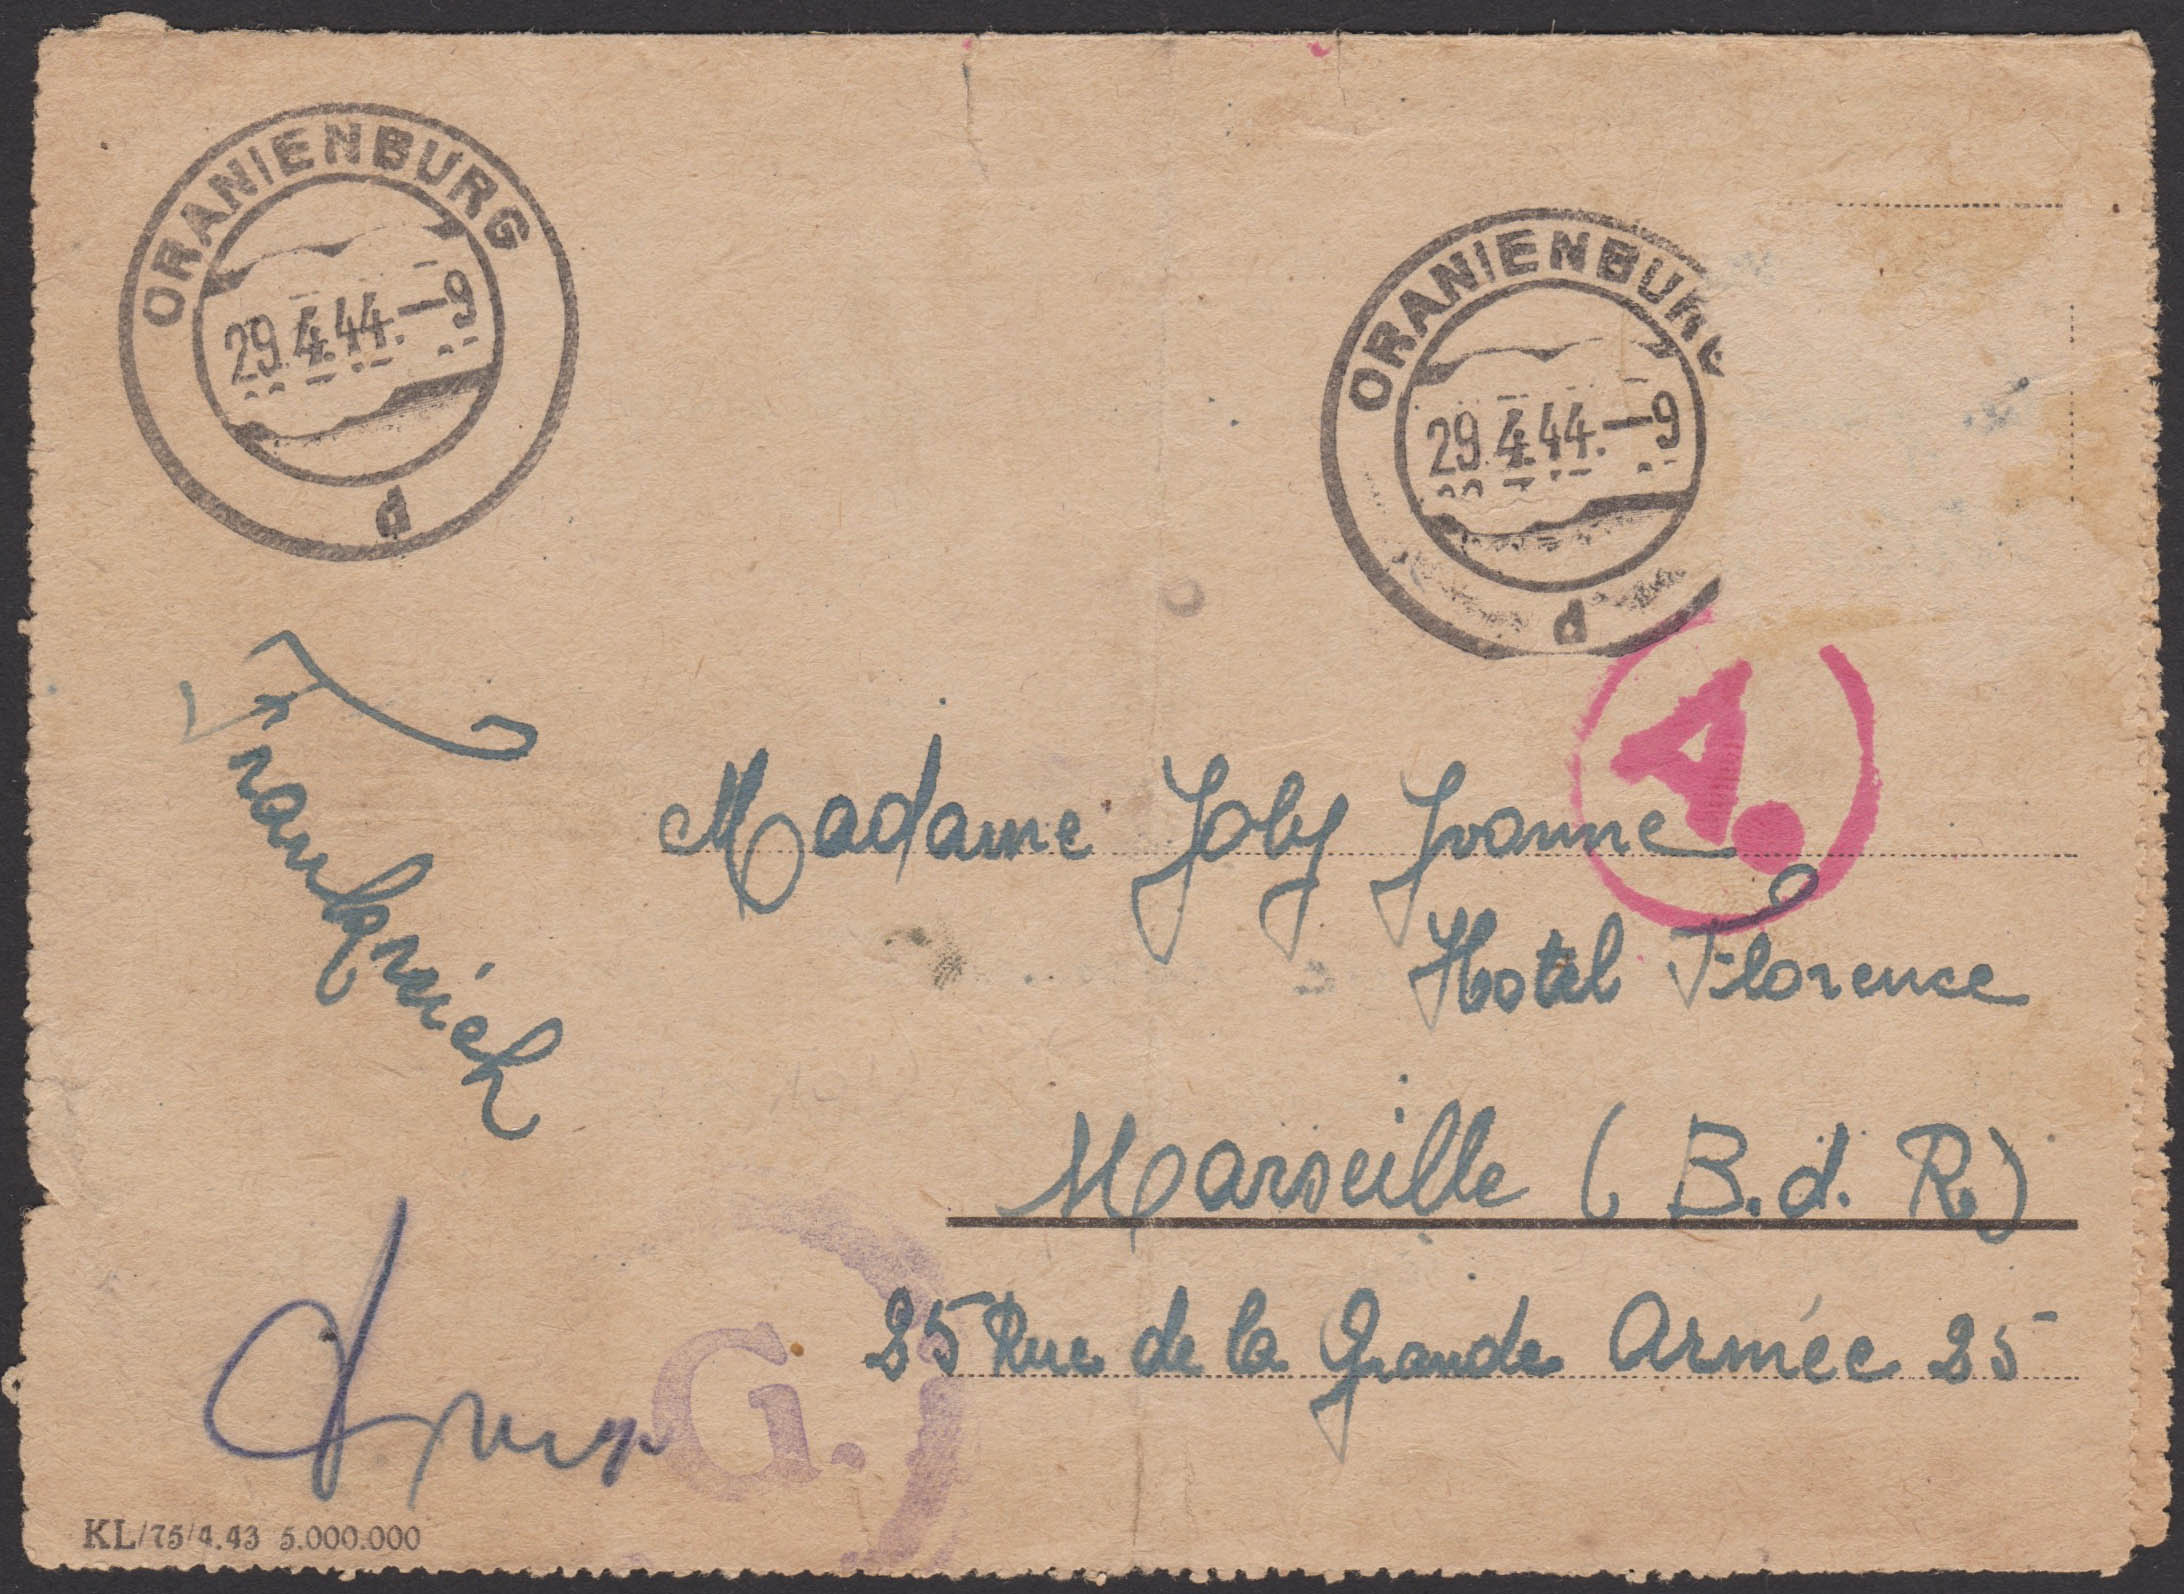 ORANIENBURG
29.4.44.-9
d
ORANIENBURG
29.4.44.-9
d
A.
Frankreich
Madame Joly Yvonne
Hotel Florence
Marseille (B.d.R)
25 Rue de la Grande Armée 25
G.
KL/75/4.43 5.000.000